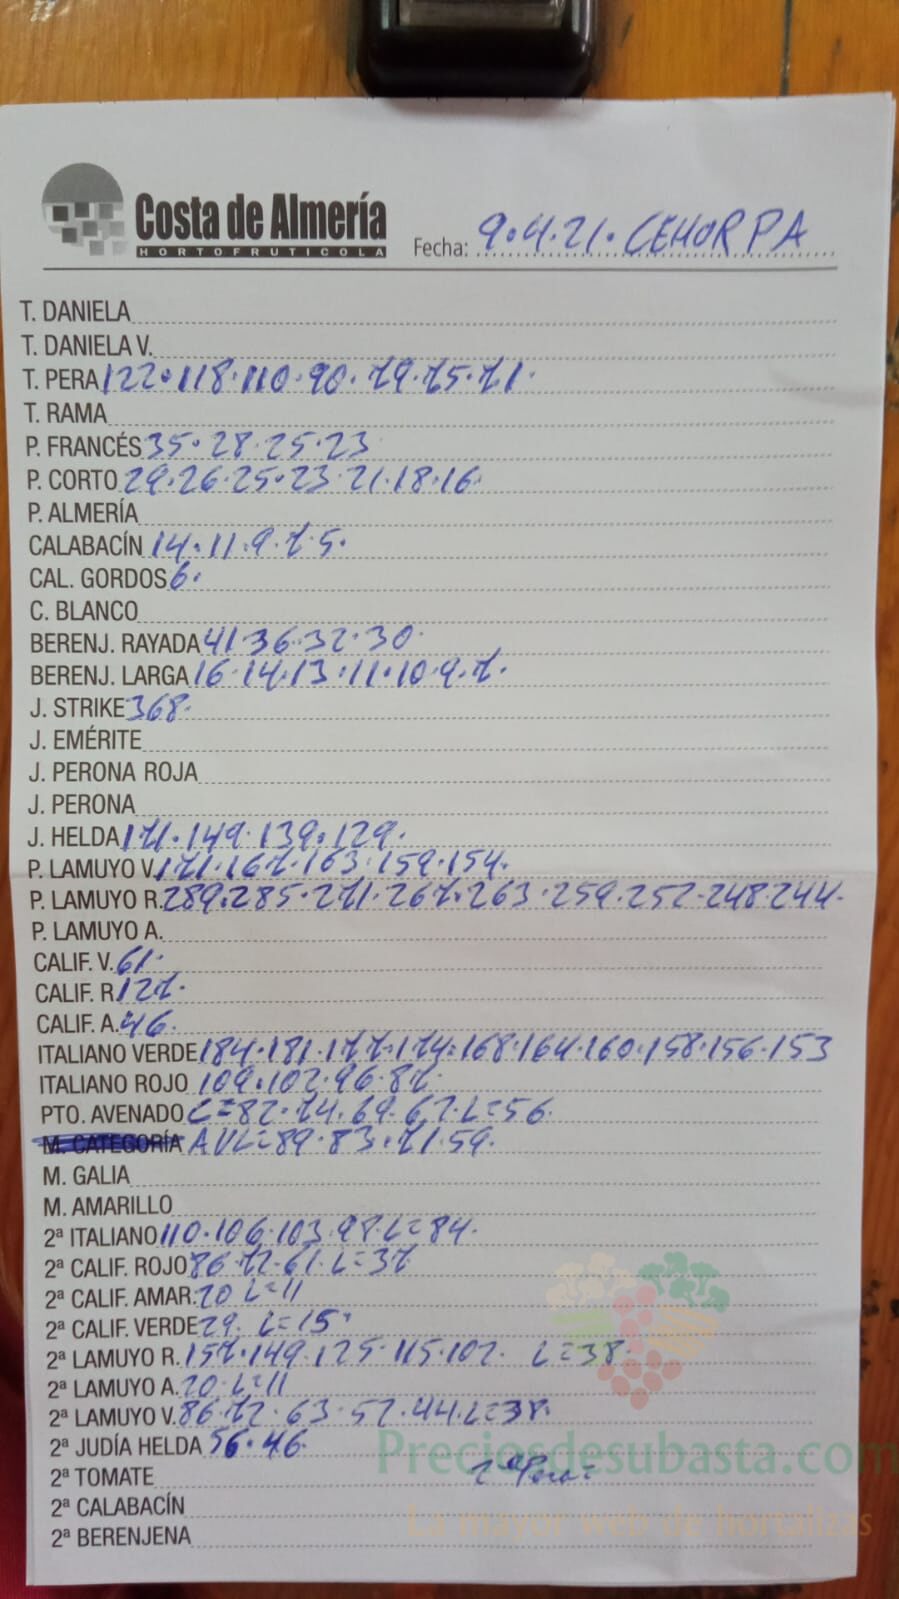 Costa de Almería
HORTOFRUTICOLA
Fecha: 9.4.21. CEHORPA
T. DANIELA
T. DANIELA V.
T. PERA 122.118.110.90.79.75.71.
T. RAMA
P. FRANCÉS 35.28.25.23
P. CORTO 29.26.25.23.21.18.16.
P. ALMERÍA
CALABACÍN 14.11.9.7.5.
CAL. GORDOS 6.
C. BLANCO
BERENJ. RAYADA 41.36.32.30.
BERENJ. LARGA 16.14.13.11.10.9.7.
J. STRIKE 368.
J. EMÉRITE
J. PERONA ROJA
J. PERONA
J. HELDA 171.149.139.129.
P. LAMUYO V. 171.167.163.159.154.
P. LAMUYO R. 289.285.271.267.263.259.252.248.244.
P. LAMUYO A.
CALIF. V. 61.
CALIF. R 127.
CALIF. A. 46.
ITALIANO VERDE 184.181.177.174.168.164.160.158.156.153
ITALIANO ROJO 109.102.96.87.
PTO. AVENADO L=82.74.69.67.L=56.
M. CATEGORÍA AVL=89.83.71.59.
M. GALIA
M. AMARILLO
2ª ITALIANO 110.106.103.98.L=84.
2ª CALIF. ROJO 86.72.61.L=37.
2ª CALIF. AMAR. 20 L=11
2ª CALIF. VERDE 29. L=15.
2ª LAMUYO R. 157.149.125.115.102. L=38.
2ª LAMUYO A. 20.L=11
2ª LAMUYO V. 86.72.63.57.44.L=38.
2ª JUDÍA HELDA 56.46.
Preciosdesubasta.com
2ª TOMATE 2ª Pera=
2ª CALABACÍN
La mayor web de hortalizas
2ª BERENJENA